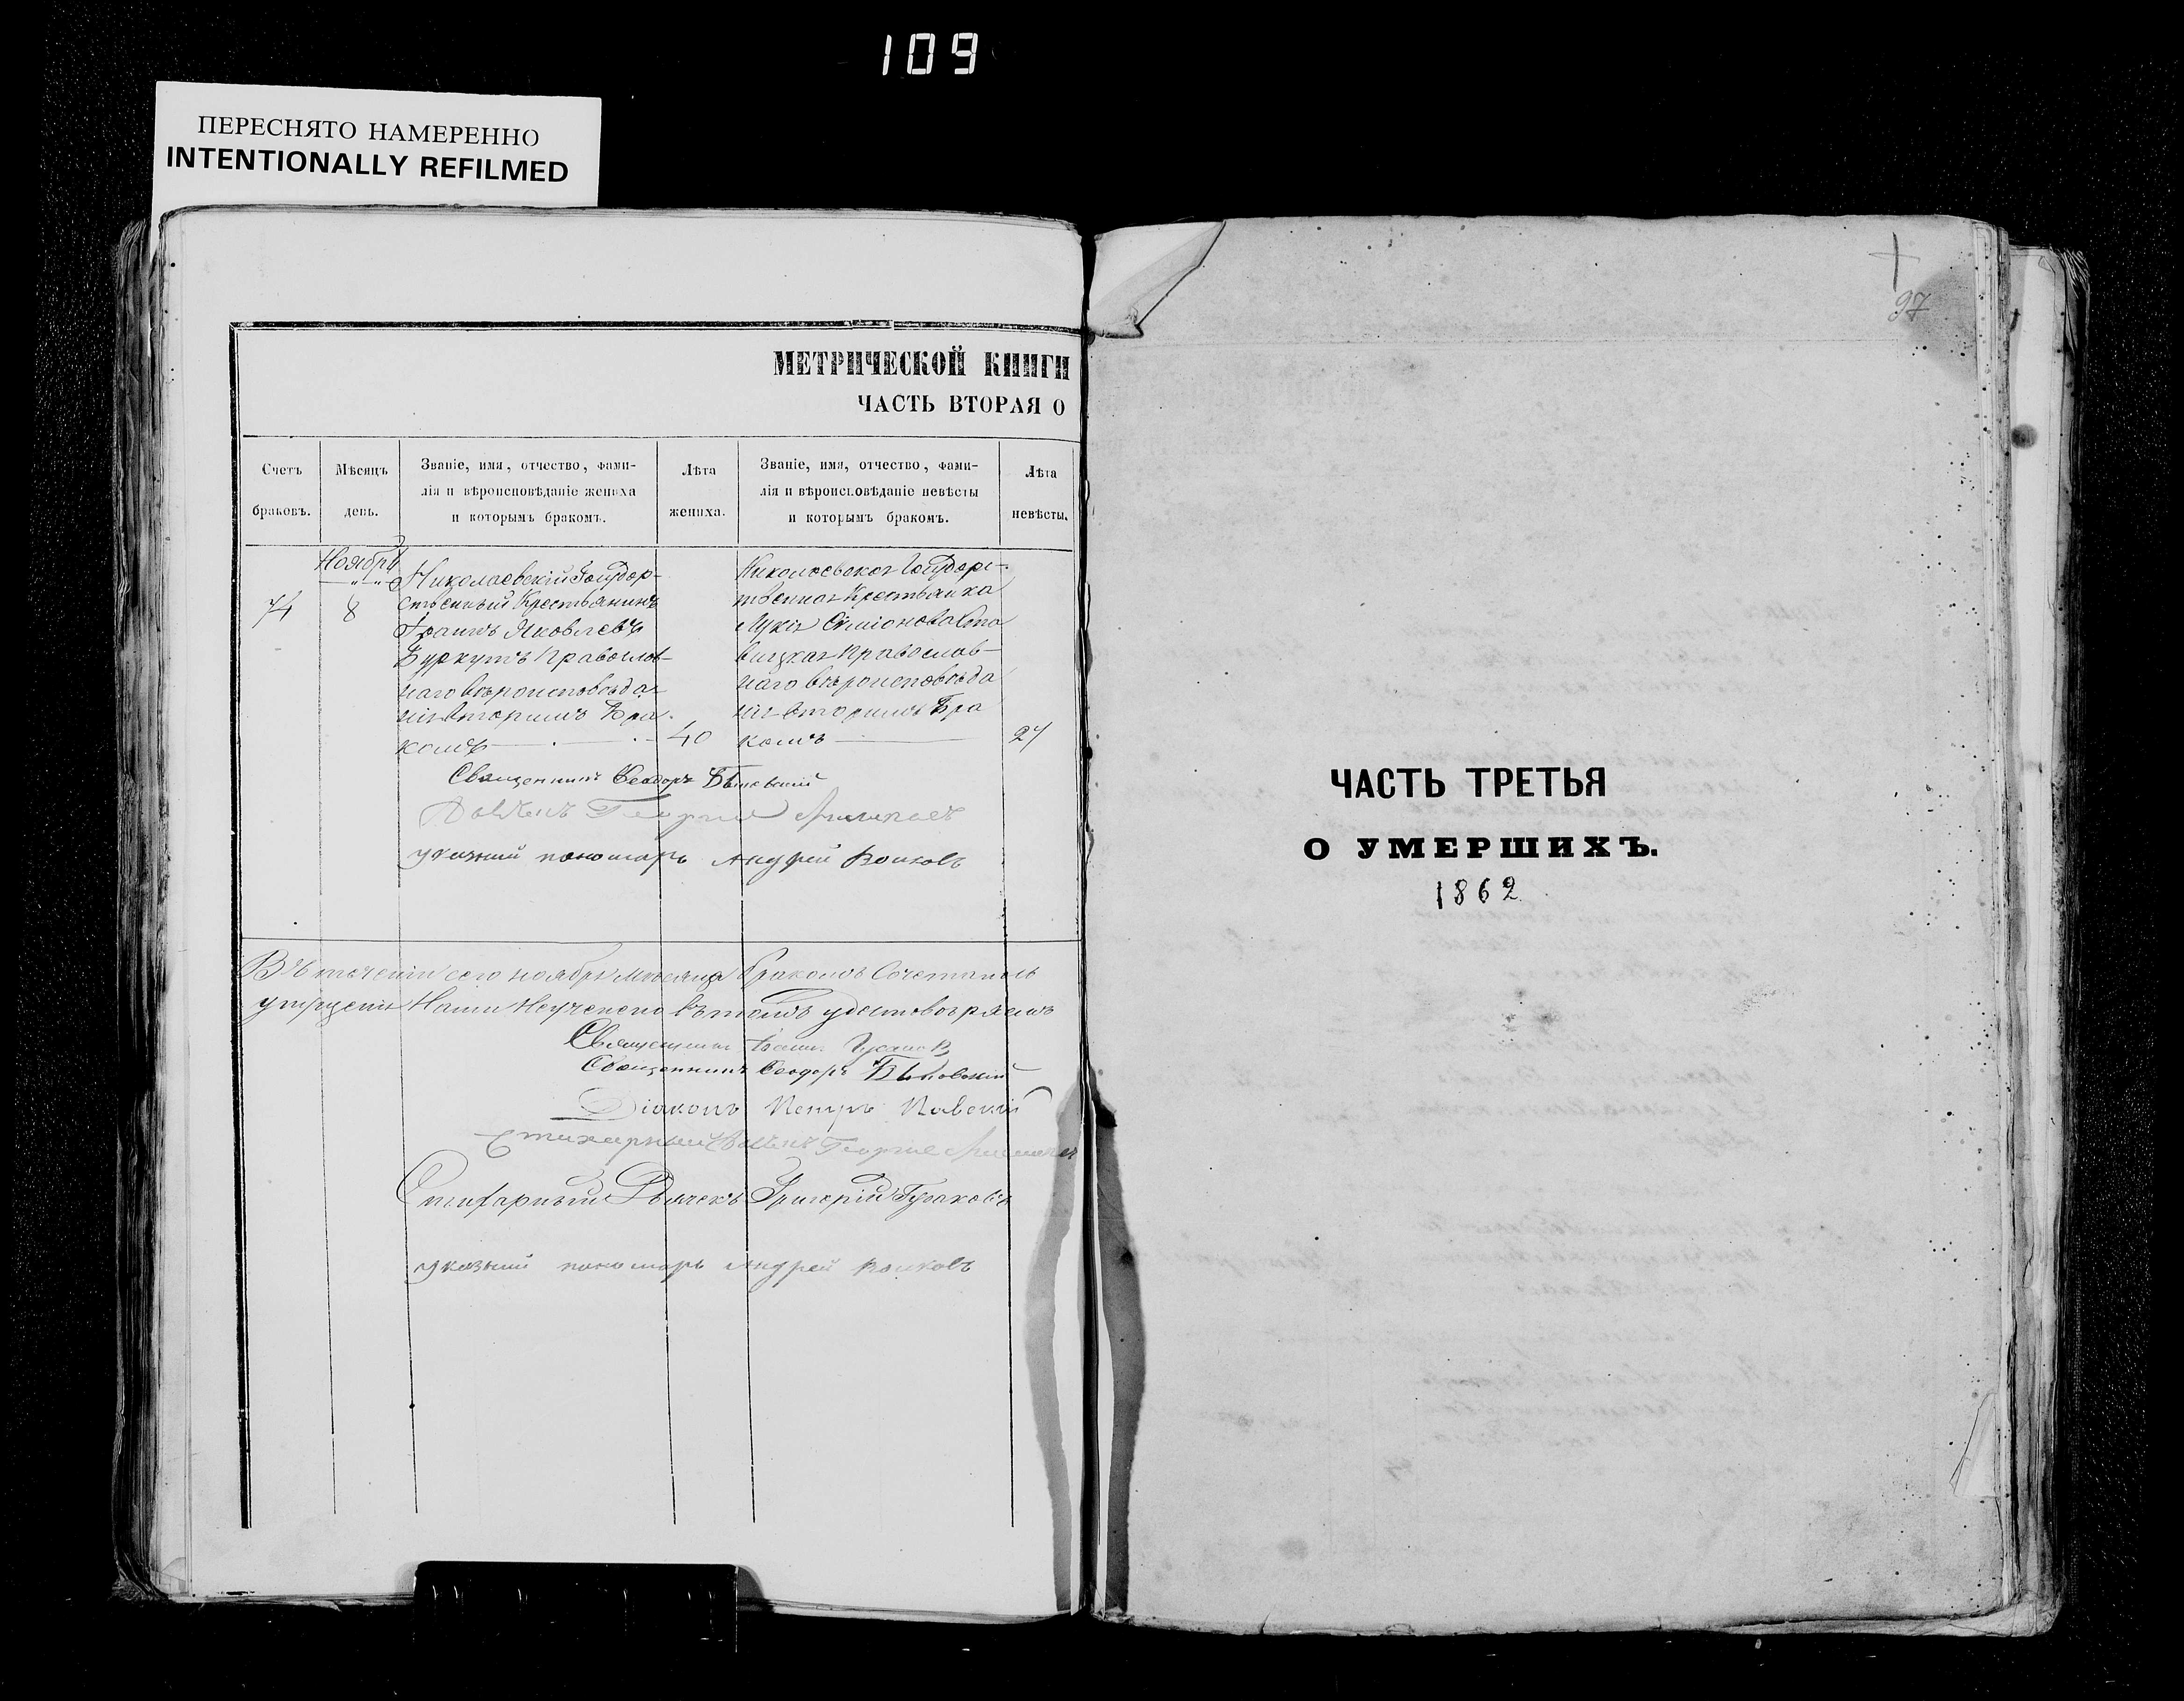 109
ПЕРЕСНЯТО НАМЕРЕННО
INTENTIONALLY REFILMED
МЕТРИЧЕСКОЙ КНИГИ
ЧАСТЬ ВТОРАЯ О
Счетъ браковъ.
Мѣсяцъ день.
Званіе, имя, отчество, фами-
лія и вѣроисповѣданіе жениха
и которымъ бракомъ.
Лѣта жениха.
Званіе, имя, отчество, фами-
лія и вѣроисповѣданіе невѣсты
и которымъ бракомъ.
Лѣта невѣсты.
Ноябрь
74
8
Николаевскій Государ-
ственный Крестьянинъ
Яковлевъ
Буркутъ Православ-
наго вѣроисповѣда-
нія вторымъ Бра-
комъ
40
Николаевская Государс-
твенная Крестьянка
Симіонова
Православ-
наго вѣроисповѣда
нія вторымъ Бра
комъ
27
Священникъ Ѳеодоръ
Георгій
указный пономарь Андрей Волковъ
Въ теченіи сего ноября мѣсяца бракомъ
въ томъ удостовѣряемъ
Священникъ
Священникъ Ѳеодоръ
Діаконъ Петръ
Стихарный Георгій
Стихарный Дьячекъ Григорій
указный пономарь Андрей Волковъ
97
ЧАСТЬ ТРЕТЬЯ
О УМЕРШИХЪ.
1862